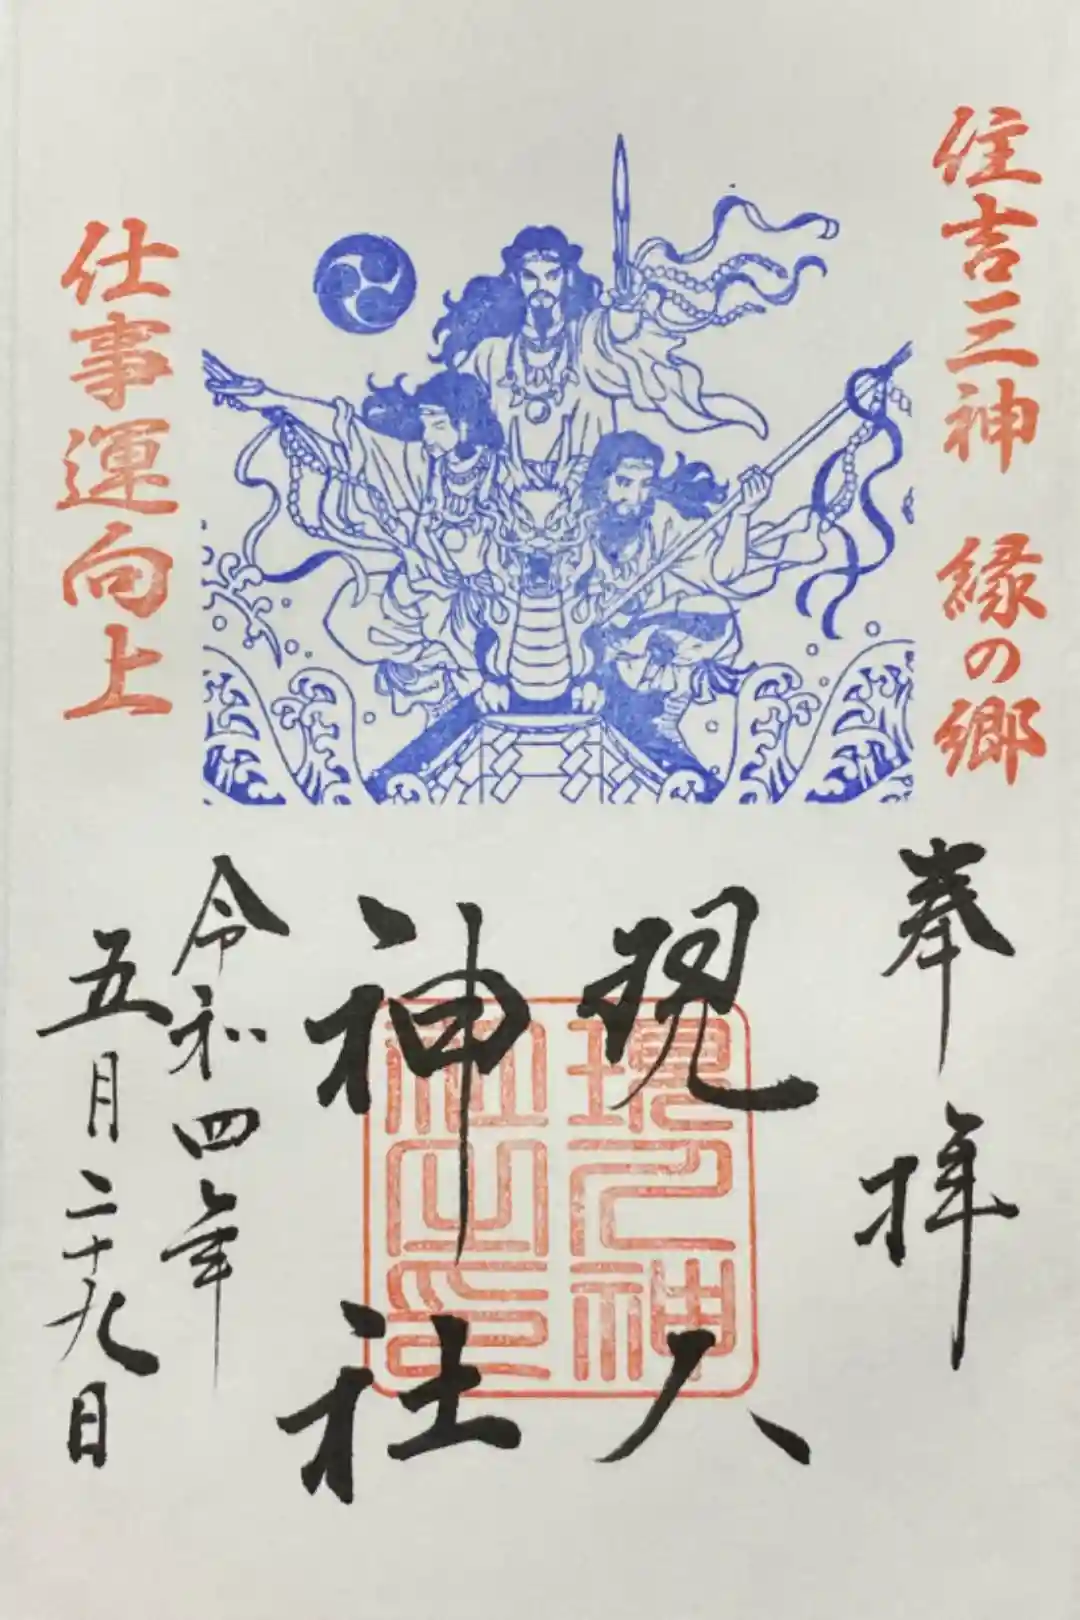 住吉三神 縁の郷
仕事運向上
奉拝
現人
神社
現人神
社之印
令和四年
五月二十九日